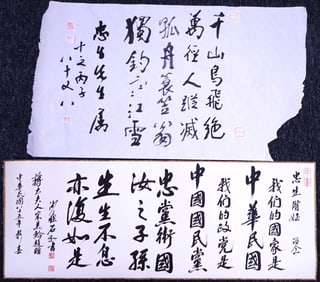 千山鳥飛絕
萬徑人蹤滅
孤舟蓑笠翁
獨釣寒江雪
忠生先生屬
八十叉八
忠生
我們的國家是
中華民國
我們的政党是
中國國民黨
忠黨衛國
汝之子孫
生生不息
亦復如是
蔣夫人宋美齡題贈
中華民國八十五年新春